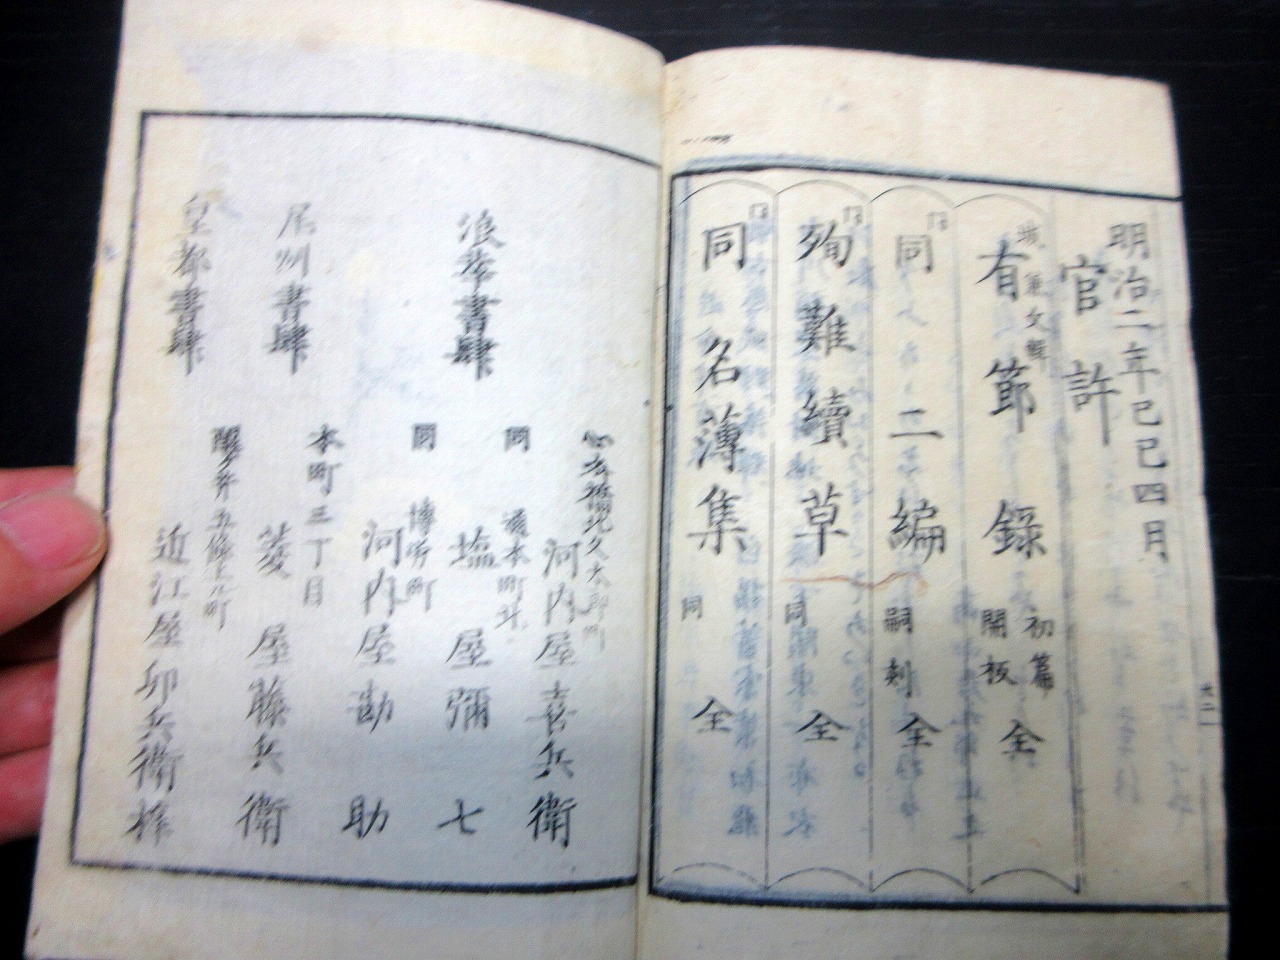 明治二年己巳四月
官許
城兼文輯
有節録
初篇
開板
全
同二編
嗣刻
全
殉難續草
同
全
同名簿集
同
全
浪華書肆
心斎橋北久太郎町
河内屋喜兵衛
同
本町北
塩屋彌七
同
博労町
河内屋勘助
尾州書肆
本町三丁目
菱屋藤兵衛
皇都書肆
五條上ル町
近江屋卯兵衛梓